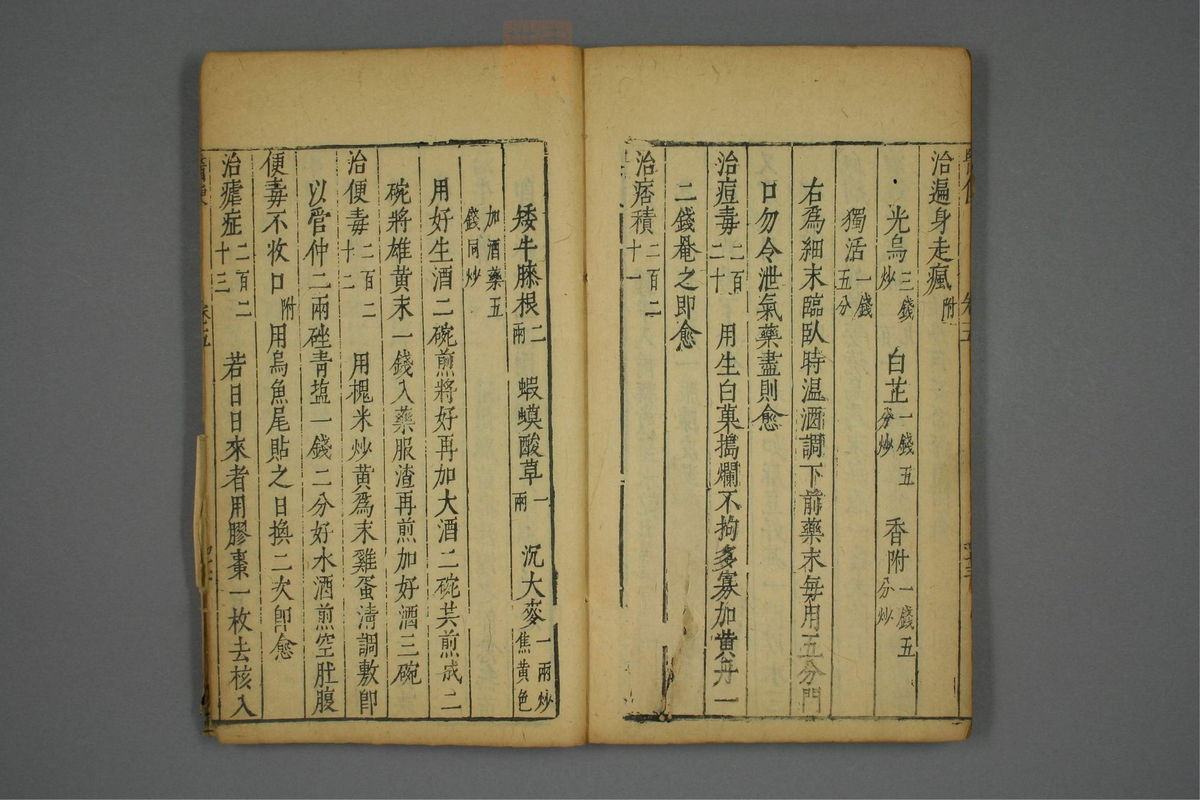 治遍身走瘋附
光烏三錢炒 白芷一錢五分炒 香附一錢五分炒
獨活一錢五分
右為細末臨臥時温酒調下前藥末每用五分閂
口勿令泄氣藥盡則愈
治痘毒二百二十 用生白菓搗爛不拘多寡加黃丹一
二錢罨之即愈
治痞積二百二十一
矮牛膝根二兩 蝦蟆酸草一兩 沉大麥一兩炒焦黃色
加酒藥五錢同炒
用好生酒二碗煎將好再加大酒二碗共煎成二
碗將雄黃末一錢入藥服渣再煎加好酒三碗
治便毒二百二十二 用槐米炒黃為末雞蛋清調敷即
以管仲二兩剉青塩一錢二分好水酒煎空肚腹
便毒不收口附 用烏魚尾貼之日換二次即愈
治瘧症二百二十三 若日日來者用膠棗一枚去核入
醫便 卷五